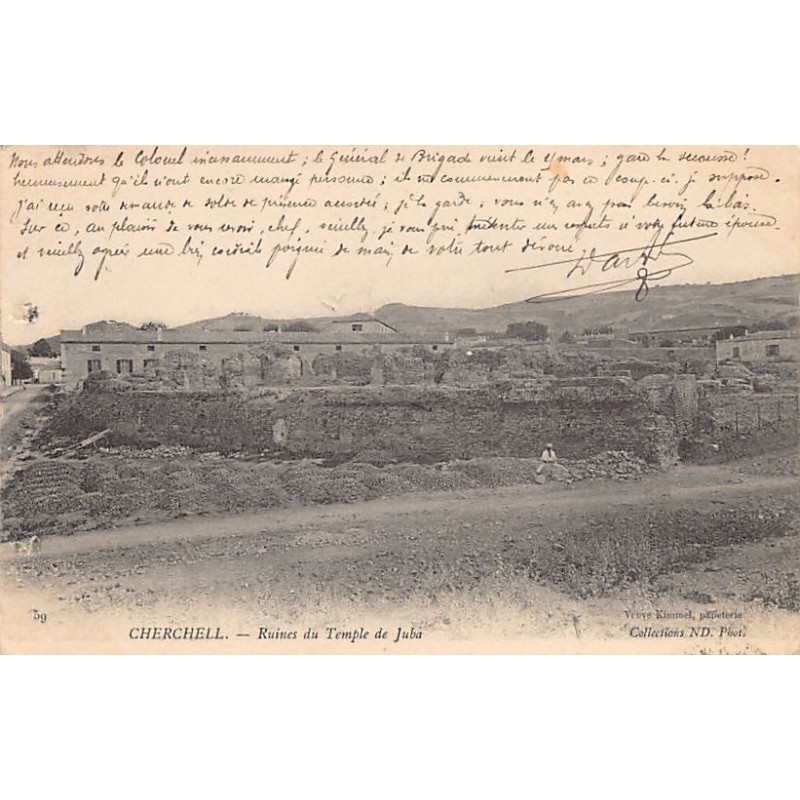 Nous attendons le Colonel incessamment ; le Général de Brigade vient le 4 mars ; gare la secousse !
heureusement qu'ils n'ont encore mangé personne ; ils ne commenceront pas ce coup-ci, je suppose.
J'ai reçu votre demande de solde de présence arriérée ; je la garde ; vous n'en avez pas besoin là-bas.
Sur ce, au plaisir de vous revoir, chef, veuillez, je vous prie, présenter mes respects à votre future épouse
et veuillez agréer une bien cordiale poignée de main de votre tout dévoué.
59
CHERCHELL. — Ruines du Temple de Juba
Veuve Kimmel, papeterie
Collections ND. Phot.